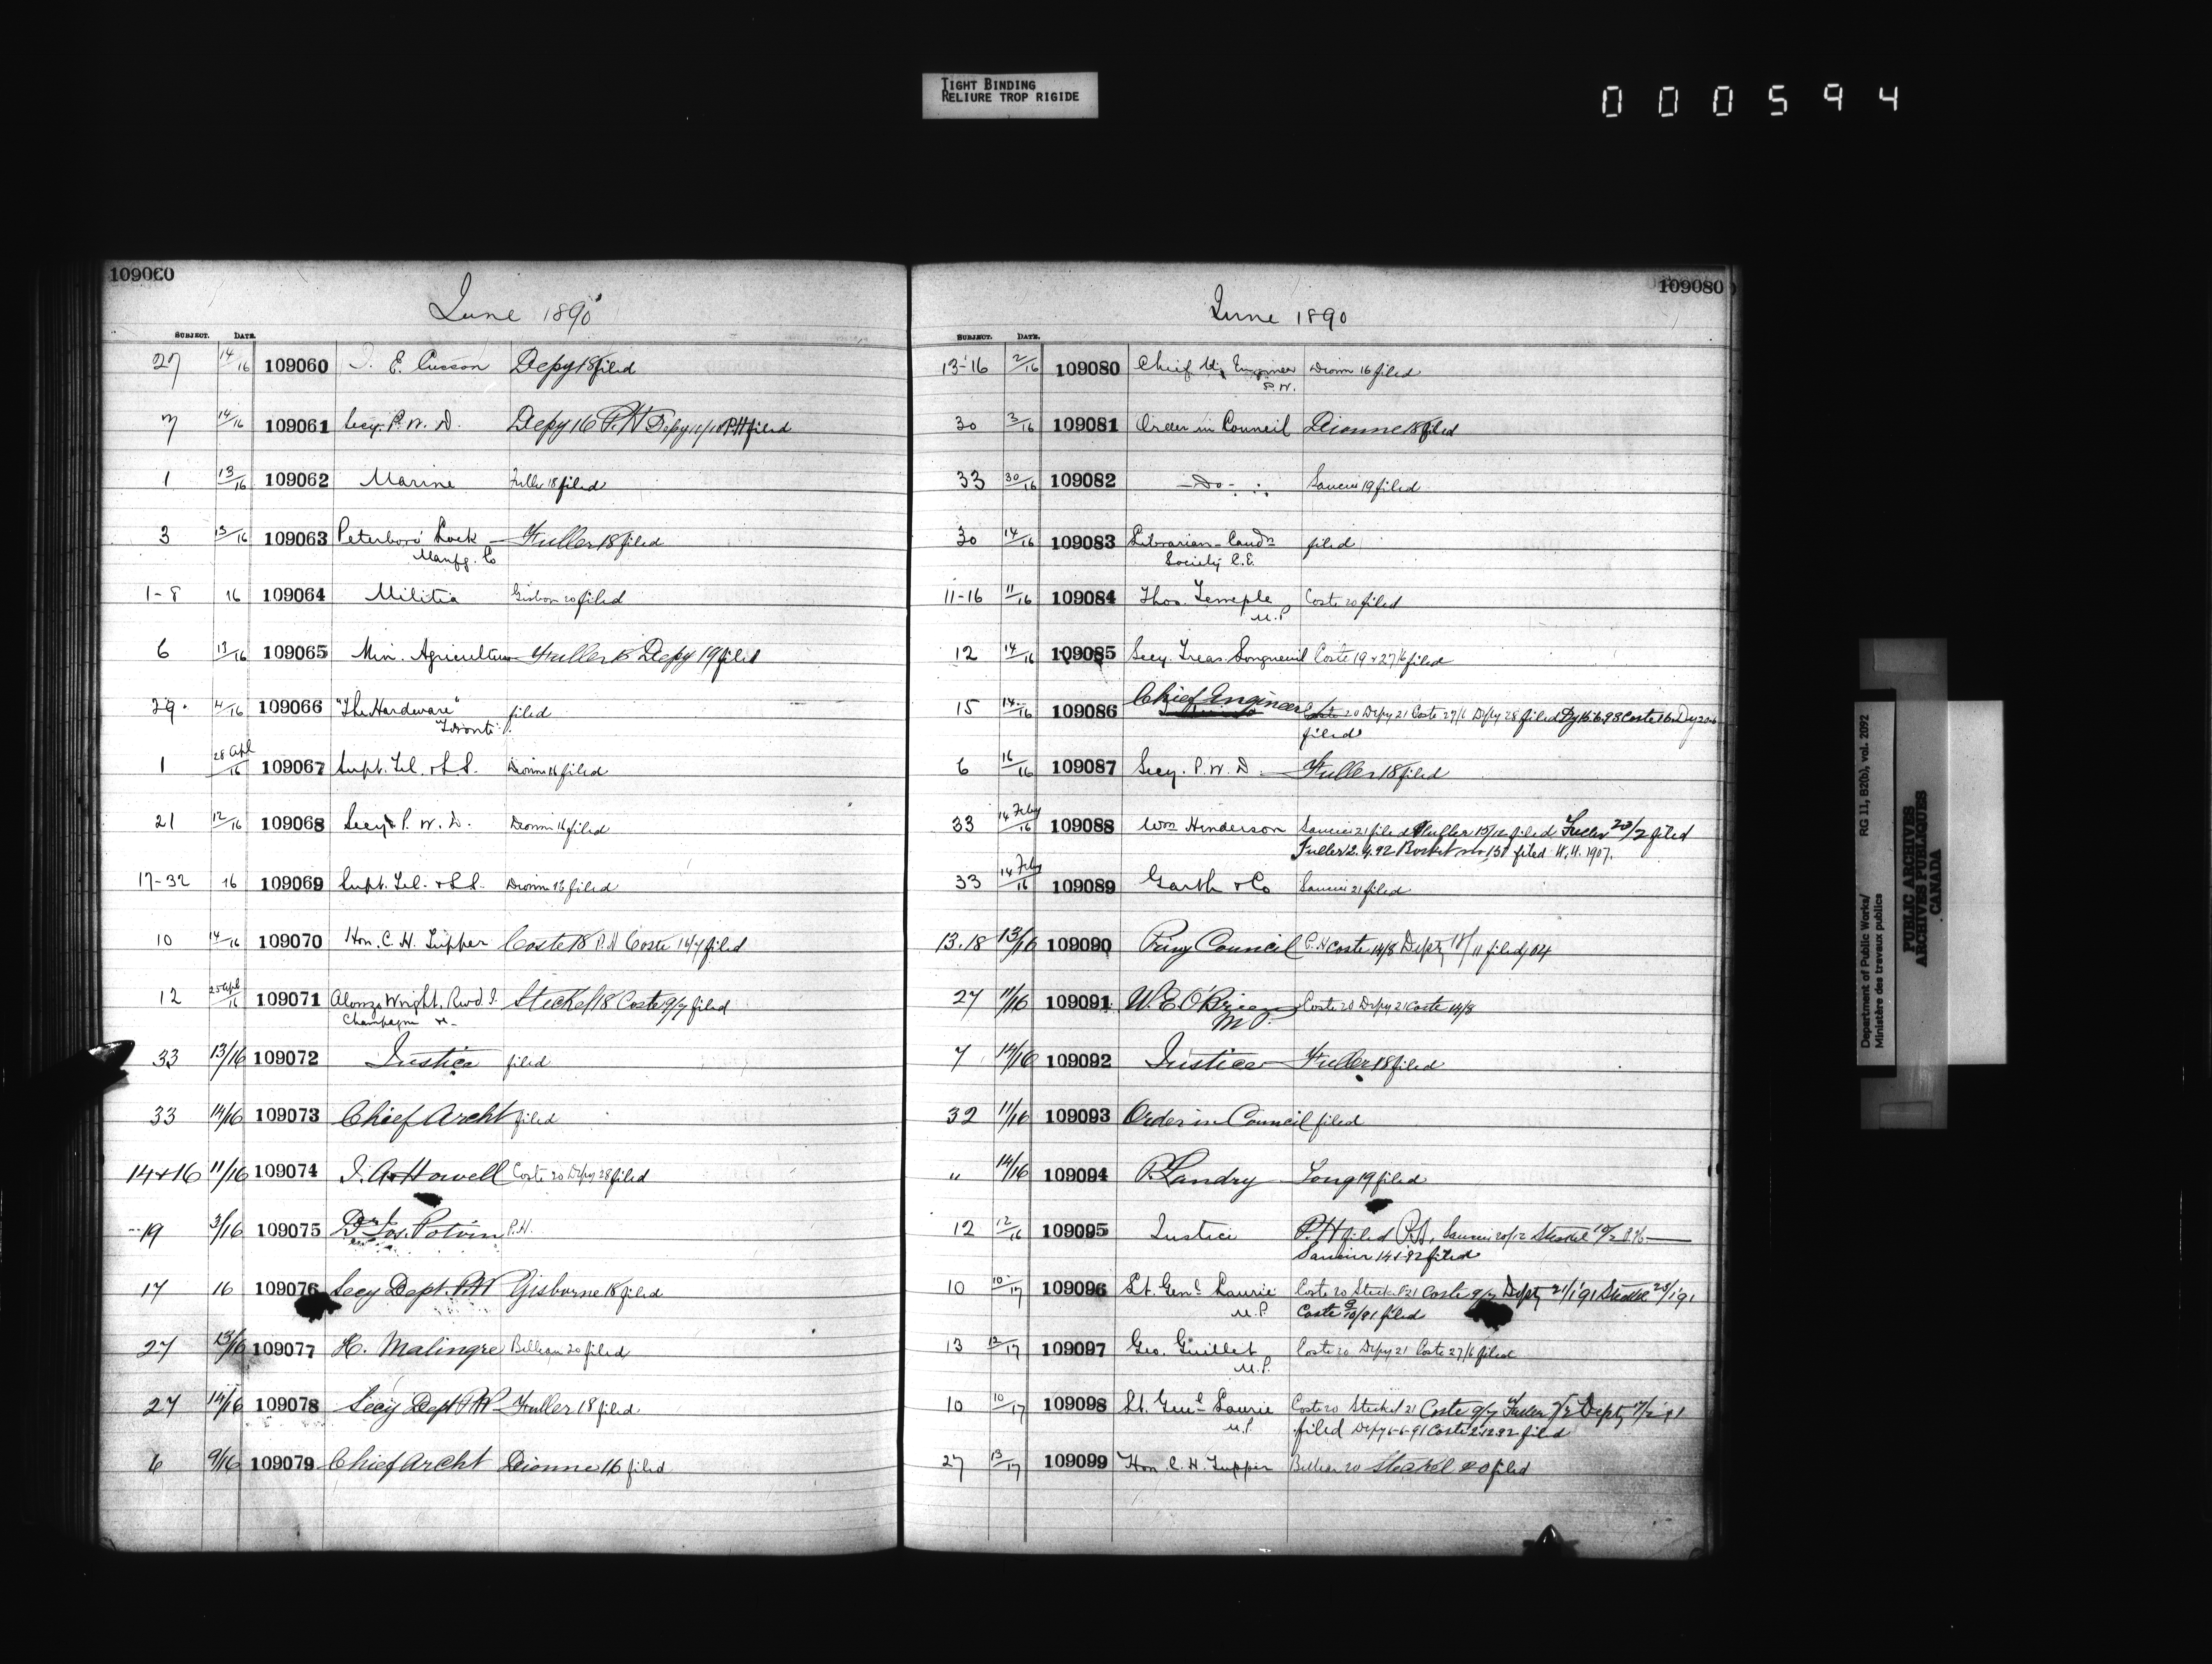 TIGHT BINDING
RELIURE TROP RIGIDE
000594
109060
June 1890
SUBJECT. DATE.
27 14/16 109060 E. Cusson Depy 18 filed
7 14/16 109061 Secy. P. W. D. Depy 16 P.H Depy P.H filed
1 13/16 109062 Marine Fuller 18 filed
3 13/16 109063 Peterboro' Lock Fuller 18 filed
Manfg. Co
1-8 16 109064 Militia Gisbon 20 filed
6 13/16 109065 Min. Agriculture Fuller 18 Depy 19 filed
29 4/16 109066 "The Hardware" filed
Toronto
28 Apl
1 /16 109067 Supt. Tel. & S.S. Dionn 16 filed
21 12/16 109068 Secy P. W. D. Dionn 16 filed
17-32 16 109069 Supt. Tel. & S.S. Dionn 16 filed
10 14/16 109070 Hon. C. H. Tupper Coste 18 P.H Coste 14/7 filed
12 25 Apl/16 109071 Alonzo Wright, Revd. Steckel 18 Coste 9/7 filed
Champagne &-
33 13/16 109072 Justice filed
33 14/16 109073 Chief Archt filed
14+16 11/16 109074 J. A. Howell Coste 20 Depy 28 filed
19 3/16 109075 Jos. Potvin P.H.
17 16 109076 Secy Dept. P.W Gisborne 18 filed
27 13/16 109077 H. Malingre Billeau 20 filed
27 14/16 109078 Secy Dept P.W Fuller 18 filed
6 9/16 109079 Chief Archt Dionne 16 filed
109080
June 1890
SUBJECT. DATE.
13-16 2/16 109080 Chief Engineer Dionn 16 filed
P.W.
30 3/16 109081 Order in Council Dionne 18 filed
33 30/16 109082 -Do- Saucier 19 filed
30 14/16 109083 Librarian-Candn filed
Society C.E.
11-16 11/16 109084 Thos. Temple Coste 20 filed
M.P
12 14/16 109085 Secy. Treas. Longueuil Coste 19 & 27/6 filed
15 14/16 109086 Chief Engineer Coste 20 Depy 21 Coste 27/6 Depy 28 filed Dy 15.6.98 Coste
filed
6 16/16 109087 Secy. P. W. D. Fuller 18 filed
33 14 Feby/16 109088 Wm Henderson Saucier 21 filed Fuller 15/12 filed Fuller 23/2 filed
Fuller 2.4.92 filed 1907.
33 14 Feby/16 109089 Garth & Co Saucier 21 filed
13.18 13/16 109090 Privy Council P.H Coste 14/8 Depty 18/11 filed
27 11/16 109091 W. E. O'Brien Coste 20 Depy 21 Coste 14/8
M P.
7 14/16 109092 Justice Fuller 18 filed
32 11/16 109093 Order in Council filed
" 14/16 109094 P. Landry Long 19 filed
12 12/16 109095 Justice P.H filed P.H. Saucier 20/12 Steckel
Saucier 14-1-92 filed
10 10/17 109096 Lt. Genl. Laurie Coste 20 Steckel 21 Coste 9/7 Depty 21/1 91 Steckel 23/1 91
M.P. Coste filed
13 12/17 109097 Geo. Guillet Coste 20 Depy 21 Coste 27/6 filed
M.P.
10 10/17 109098 Lt. Genl. Laurie Coste 20 Steckel 21 Coste 9/7 Fuller Depty
M.P. filed Depy 6-6-91 Coste 2.12.92 filed
27 13/17 109099 Hon. C. H. Tupper Billeau 20 Steckel 20 filed
Department of Public Works/ RG 11, B2(b), vol. 2092
Ministère des travaux publics
PUBLIC ARCHIVES
ARCHIVES PUBLIQUES
CANADA